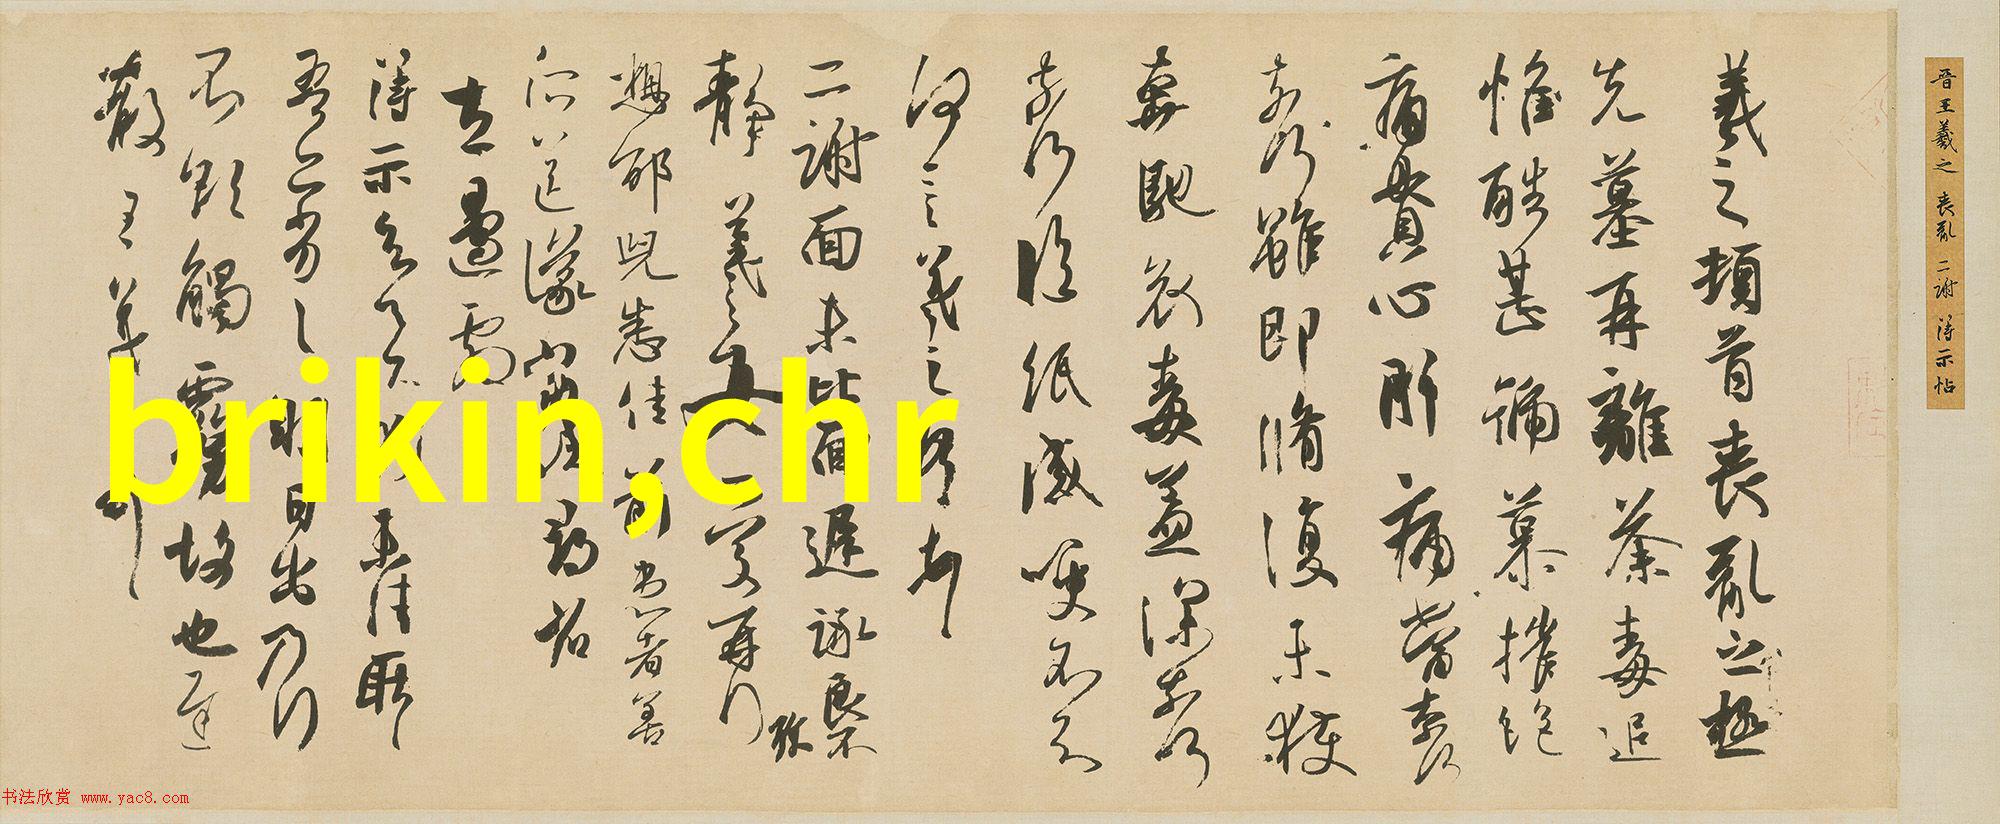 晋王羲之 喪亂 二謝 得示帖
羲之頓首喪亂之極
先墓再離荼毒追
惟酷甚號慕摧絕
痛貫心肝痛當奈何
奈何雖即脩復未獲
奔馳哀毒益深奈何
奈何臨紙感哽不知
何言羲之頓首頓首
二謝面未比面遲詠良不
靜羲之女愛再拜
想邵兒悉佳前患者善
所送議當試尋省
左邊劇
得示知足下猶未佳耿耿
吾亦劣劣明日出乃行
不欲觸霧故也遲
散王羲之頓首
brikin,chr
书法欣赏 www.yac8.com